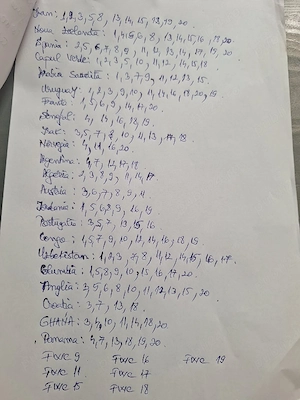 Iran: 1,2,3,5,8, 13,14,15,18,19,20.
Nova Zelândia: 1,4,5,6,8, 13,14,15,16,18,20.
2,5,6,7,8,9, 11,12,13,14,17,19,20
Capul Verde: 1,2,3,5,10,11,12,14,15,18
Arabia Saudita: 1,3,7,9,11,12,13,15.
Uruguay: 1,2,3,9,10,11,14,16,18,20,19
1,5,6,9,14,17,20.
4, 13,16,18,19.
Irak: 3,5,7,8,10,11,13,17,19
Norvegia: 4,11,16,20.
Argentina: 4,7,12,17,18
Algeria: 2,3,8,9,11,14,17.
Austria: 3,6,7,8,9,11
Iordania: 1,5,6,8,9,16,19
3,5,7,13,15,16
Congo: 1,5,7,9,10,12,14,16,18,19
Uzbekistan: 1,2,3,7,8,11,12,14,15,16,17.
Columbia: 1,5,8,9,10,15,16,17,20.
Anglia: 2,5,6,8,10,11,12,13,15,20
Croatia: 3,7,13,18.
GHANA: 3,4,10,11,14,18,20
Panama: 4,7,13,18,19,20
Fixe 9 Fixe 16 Fixe 19
Fixe 11 Fixe 17
Fixe 15 Fixe 18